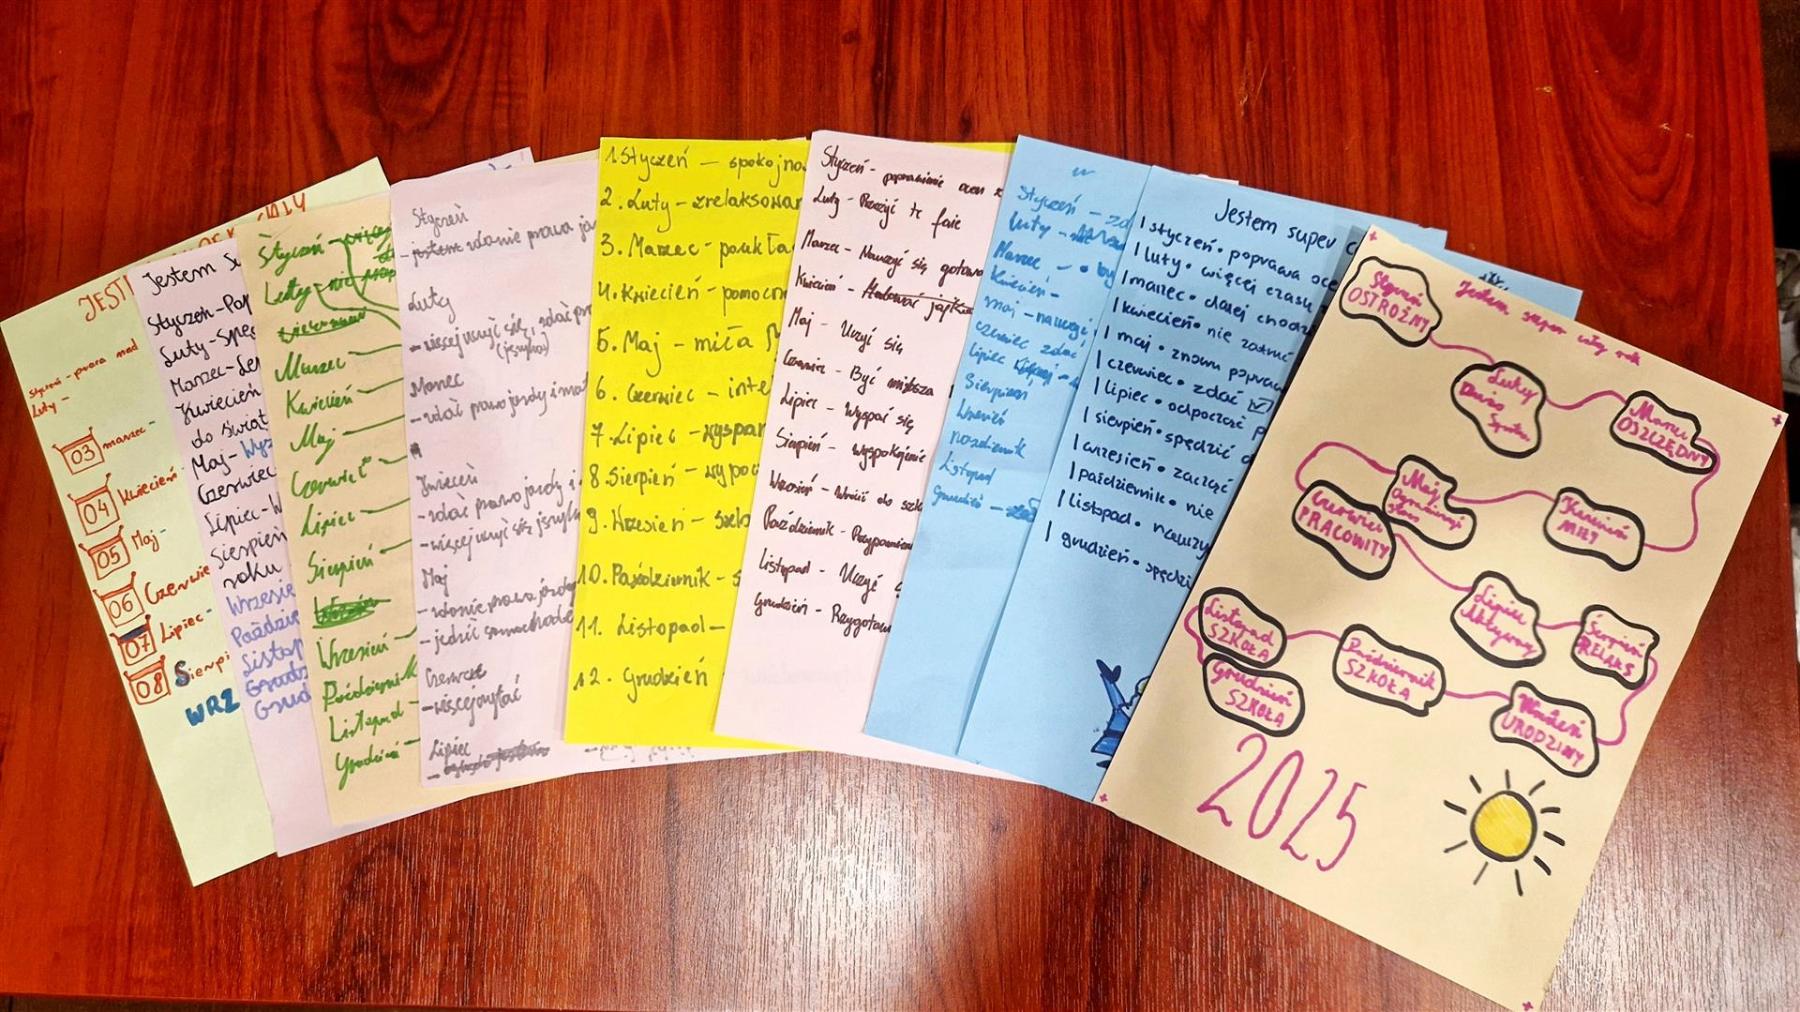 JEST
Styczeń - praca nad
Luty -
03 marzec -
04 Kwiecień
05 Maj -
06 Czerwie
07 Lipiec -
08 Sierpi
WRZ
Jestem Su
Styczeń - Pop
Luty - Spę
Marzec -
Kwiecień
do świat
Maj -
Czerwiec
Lipiec - W
Sierpień
roku
Wrzesie
Paździe
Listop
Grud
Styczeń
Luty -
Marzec
Kwiecień
Maj
Czerwiec
Lipiec
Sierpień
Wrzesień
Październik
Listopad -
Grudzień
Styczeń
- zdanie prawa ja
Luty
- więcej uczyć się, zdać pra
(języka)
Marzec
- zdać prawo jazdy i mat
Kwiecień
- zdać prawo jazdy i
- więcej uczyć się języka
Maj
- zdanie prawa jazdy
- jeździć samochode
Czerwiec
- więcej czytać
Lipiec
1. Styczeń - spokojno
2. Luty - zrelaksowan
3. Marzec - poukła
4. Kwiecień - pomocn
5. Maj - miła
6. Czerwiec - inte
7. Lipiec - wyspan
8. Sierpień - wypoc
9. Wrzesień -
10. Październik - s
11. Listopad -
12. Grudzień
Styczeń - poprawienie ocen z
Luty - Przeżyć te ferie
Marzec - Nauczyć się gotowa
Kwiecień - Hodować
Maj - Uczyć się
Czerwiec - Być milsza
Lipiec - Wyspać się
Sierpień - Wyspokojenie
Wrzesień - Wrócić do szk
Październik - Przypomnie
Listopad - Uczyć s
Grudzień - Przygotow
Styczeń - zd
Luty -
Marzec - by
Kwiecień -
maj - nauczyć
czerwiec zdać
lipiec
Sierpień
Wrzesień
październik
Listopad
Grudzień -
Jestem super c
styczeń • poprawa oce
luty • więcej czasu
marzec • dalej chodz
kwiecień • nie
maj • znowu popraw
czerwiec • zdać
lipiec • odpocząć p
sierpień • spędzić
wrzesień • zacząć
październik • nie
listopad • nauczy
grudzień • spędzi
Jestem super cały rok
Styczeń
OSTROŻNY
Luty
Dużo
Marzec
OSZCZĘDNY
Kwiecień
MIŁY
Maj
Ograniczyć
Czerwiec
PRACOWITY
Lipiec
Aktywny
Sierpień
RELAKS
Wrzesień
URODZINY
Październik
SZKOŁA
Listopad
SZKOŁA
Grudzień
SZKOŁA
2025